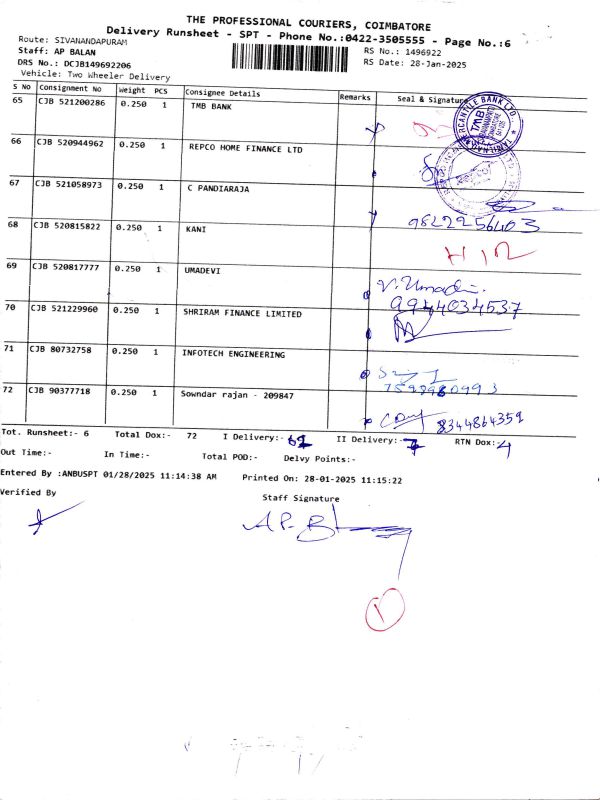 THE PROFESSIONAL COURIERS, COIMBATORE
Delivery Runsheet - SPT - Phone No.:0422-3505555 - Page No.:6
Route: SIVANANDAPURAM
RS No.: 1496922
Staff: AP BALAN
RS Date: 28-Jan-2025
DRS No.: DCJB149692206
Vehicle: Two Wheeler Delivery
S No Consignment No Weight PCS Consignee Details Remarks Seal & Signature
65 CJB 521200286 0.250 1 TMB BANK
66 CJB 520944962 0.250 1 REPCO HOME FINANCE LTD
67 CJB 521058973 0.250 1 C PANDIARAJA
68 CJB 520815822 0.250 1 KANI 9822256403
69 CJB 520817777 0.250 1 UMADEVI V. Umadevi.
9944034537
70 CJB 521229960 0.250 1 SHRIRAM FINANCE LIMITED
71 CJB 80732758 0.250 1 INFOTECH ENGINEERING
72 CJB 90377718 0.250 1 Sowndar rajan - 209847
8344864359
Tot. Runsheet:- 6 Total Dox:- 72 I Delivery:- II Delivery:- RTN Dox:- 4
Out Time:- In Time:- Total POD:- Delvy Points:-
Entered By :ANBUSPT 01/28/2025 11:14:38 AM Printed On: 28-01-2025 11:15:22
Verified By Staff Signature